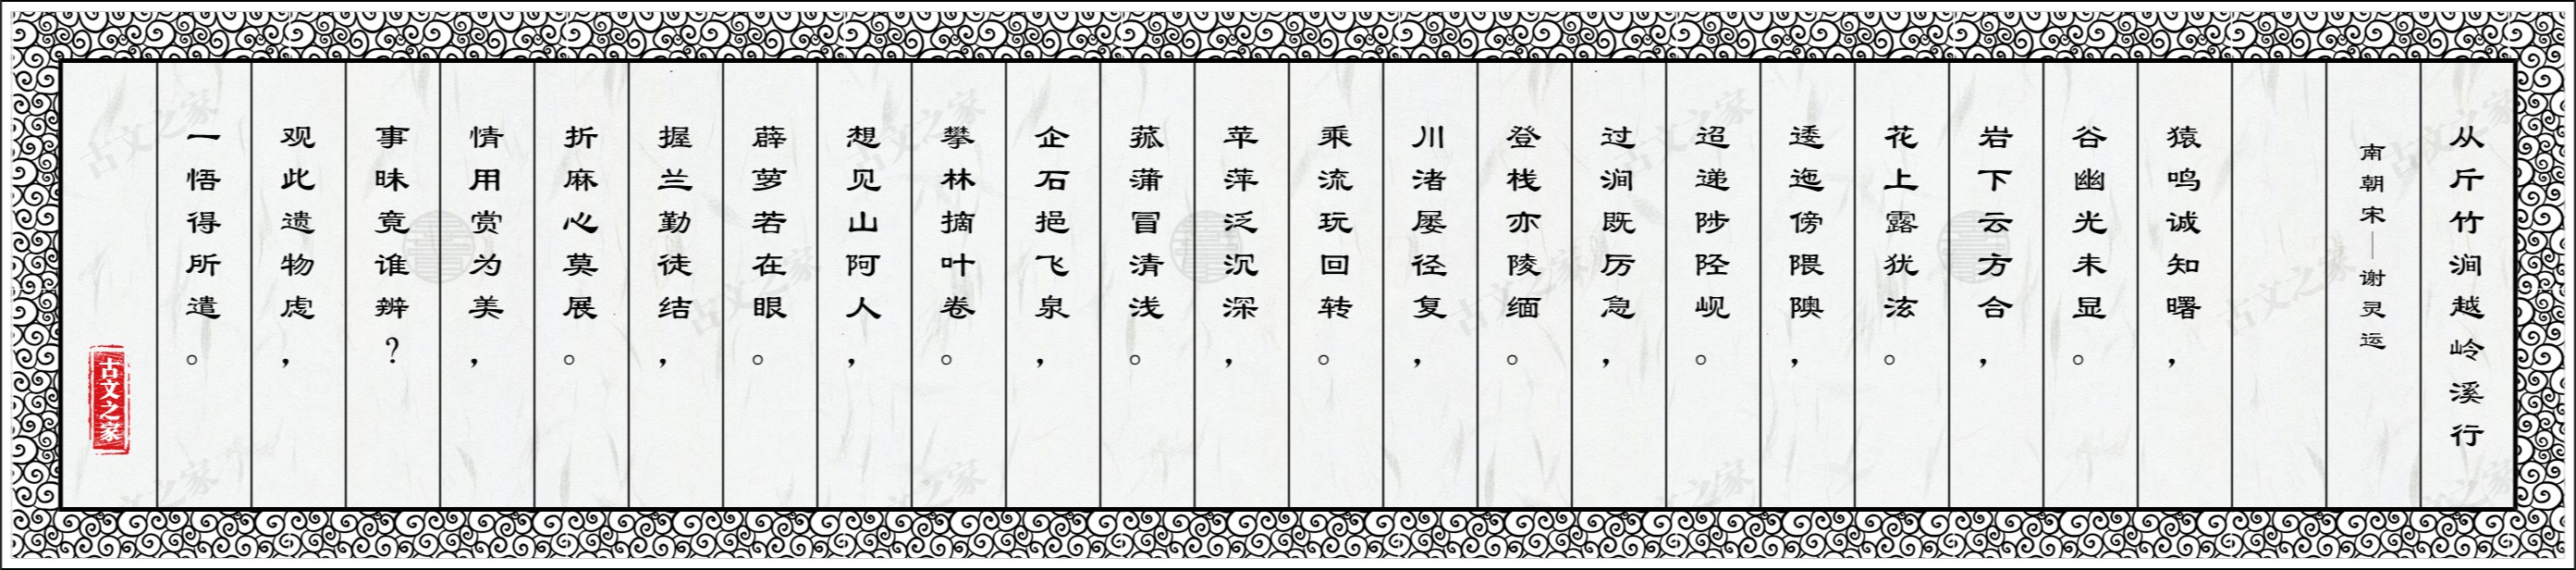 从斤竹涧越岭溪行
南朝宋—谢灵运
猿鸣诚知曙，
谷幽光未显。
岩下云方合，
花上露犹泫。
逶迤傍隈隩，
迢递陟陉岘。
过涧既厉急，
登栈亦陵缅。
川渚屡径复，
乘流玩回转。
苹萍泛沉深，
菰蒲冒清浅。
企石挹飞泉，
攀林摘叶卷。
想见山阿人，
薜萝若在眼。
握兰勤徒结，
折麻心莫展。
情用赏为美，
事昧竟谁辨？
观此遗物虑，
一悟得所遣。
古文之家